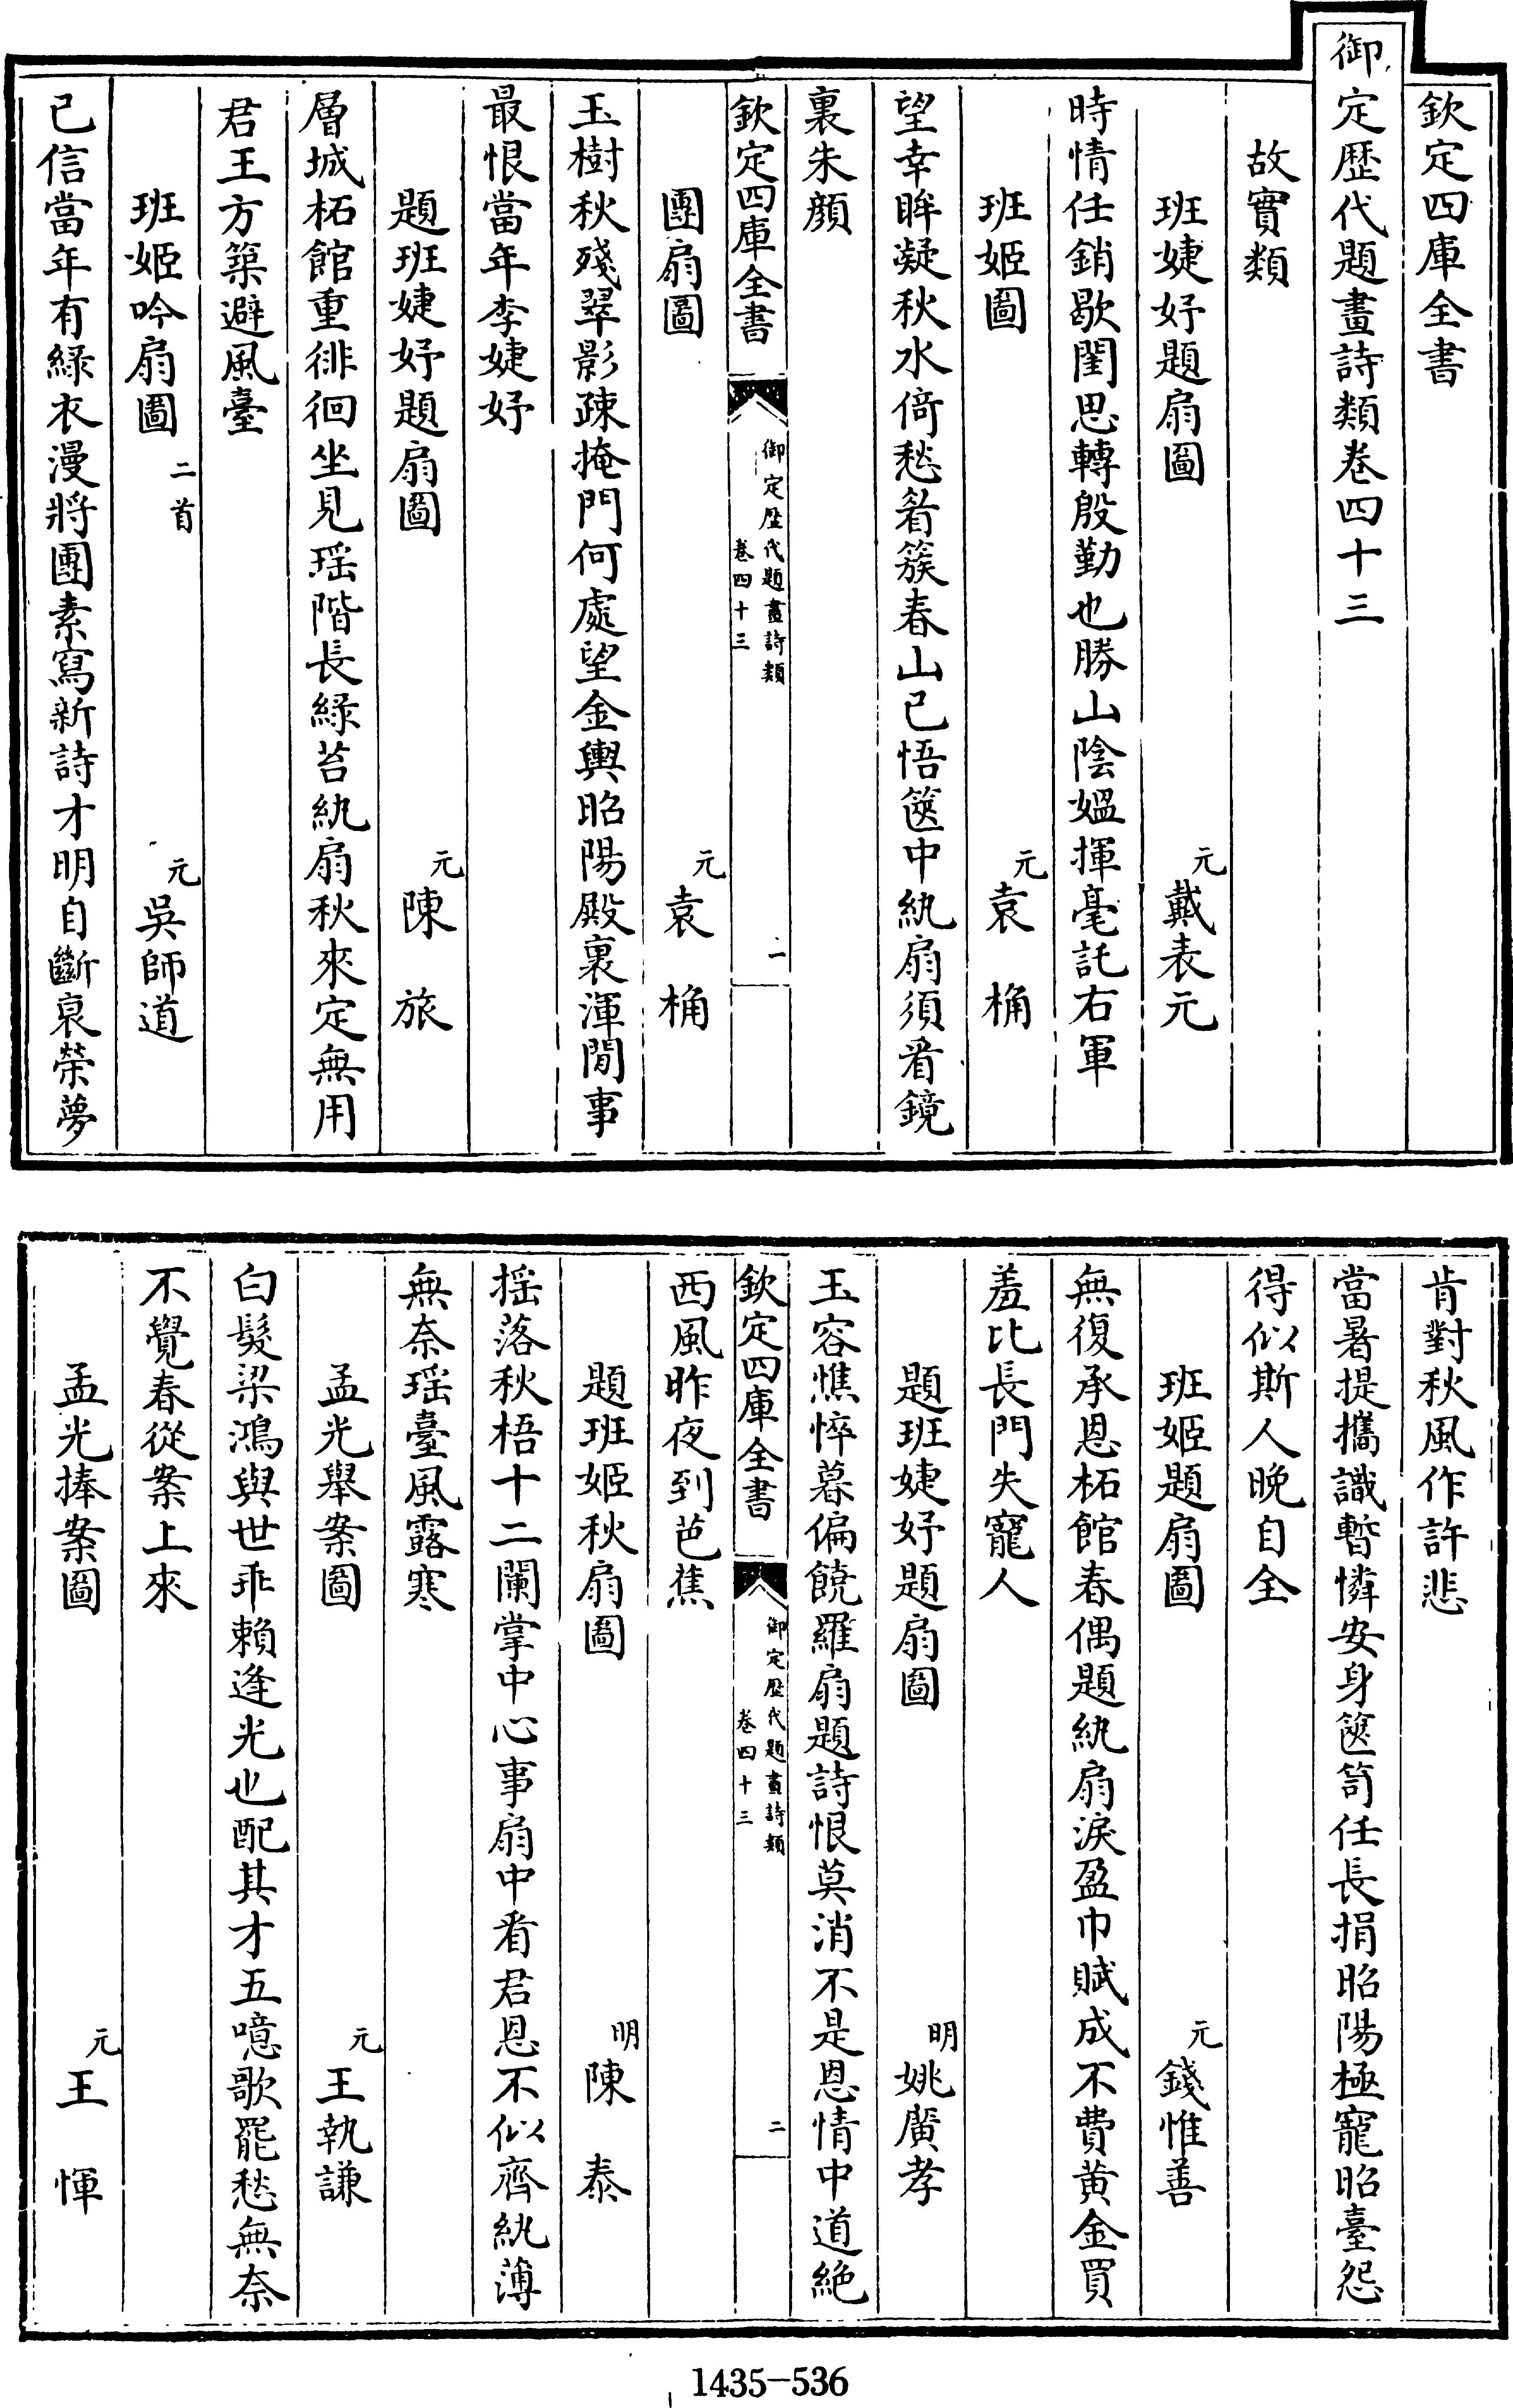 欽定四庫全書
御定歴代題畫詩類卷四十三
故實類
班婕妤題扇圖 元戴表元
時情任銷歇閨思轉殷勤也勝山陰媪揮毫託右軍
班姬圖 元袁桷
望幸眸凝秋水倚愁眉簇春山已悟篋中紈扇須看鏡
裏朱顔
欽定四庫全書 御定歴代題畫詩類 卷四十三 一
團扇圖 元袁桷
玉樹秋殘翠影疎掩門何處望金輿昭陽殿裏渾閒事
最恨當年李婕妤
題班婕妤題扇圖 元陳旅
層城柘館重徘徊坐見瑶階長緑苔紈扇秋來定無用
君王方築避風臺
班姬吟扇圖二首 元吳師道
已信當年有緑衣漫將團素寫新詩才明自斷哀榮夢
肯對秋風作許悲
當暑提攜識暫憐安身篋笥任長捐昭陽極寵昭臺怨
得似斯人晚自全
班姬題扇圖 元錢惟善
無復承恩柘館春偶題紈扇淚盈巾賦成不費黄金買
羞比長門失寵人
題班婕妤題扇圖 明姚廣孝
玉容憔悴暮偏饒羅扇題詩恨莫消不是恩情中道絶
欽定四庫全書 御定歴代題畫詩類 卷四十三 二
西風昨夜到芭蕉
題班姬秋扇圖 明陳泰
揺落秋梧十二闌掌中心事扇中看君恩不似齊紈薄
無奈瑶臺風露寒
孟光舉案圖 元王執謙
白髮梁鴻與世乖賴逢光也配其才五噫歌罷愁無奈
不覺春從案上來
孟光捧案圖 元王惲
1435-536